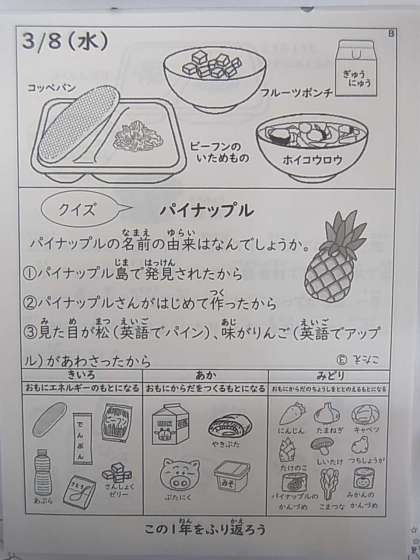 3/8(水)
B
コッペパン
フルーツポンチ
ぎゅう
にゅう
ビーフンの
いためもの
ホイコウロウ
クイズ
パイナップル
なまえ ゆらい
パイナップルの名前の由来はなんでしょうか。
じま はっけん
①パイナップル島で発見されたから
つく
②パイナップルさんがはじめて作ったから
み め まつ えいご あじ えいご
③見た目が松(英語でパイン)、味がりんご(英語でアップ
ル)があわさったから
きいろ あか みどり
おもにエネルギーのもとになる おもにからだをつくるもとになる おもにからだのちょうしをととのえるもとになる
でんぷん
やきぶた
にんじん たまねぎ キャベツ
たけのこ しいたけ つちしょうが
あぶら
さんしょく
ゼリー
ぶたにく
みそ
パイナップルの
かんづめ
こまつな
みかんの
かんづめ
ねん かえ
この1年をふり返ろう